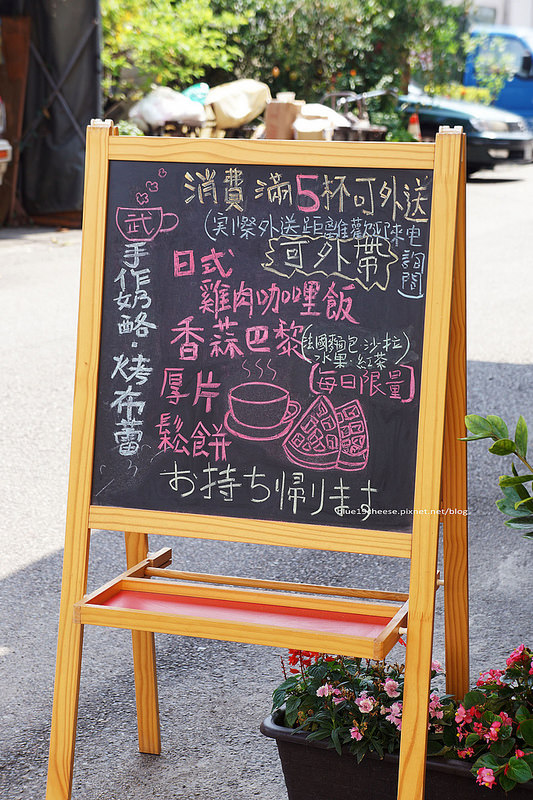 消費滿5杯可外送
(實際外送距離歡迎來電詢問)
可外帶
武
手作奶酪・烤布蕾
日式
雞肉咖哩飯
香蒜巴黎(法國麵包、沙拉
水果・紅茶)
[每日限量]
厚片
鬆餅
お持ち帰ります
blue19cheese.pixnet.net/blog